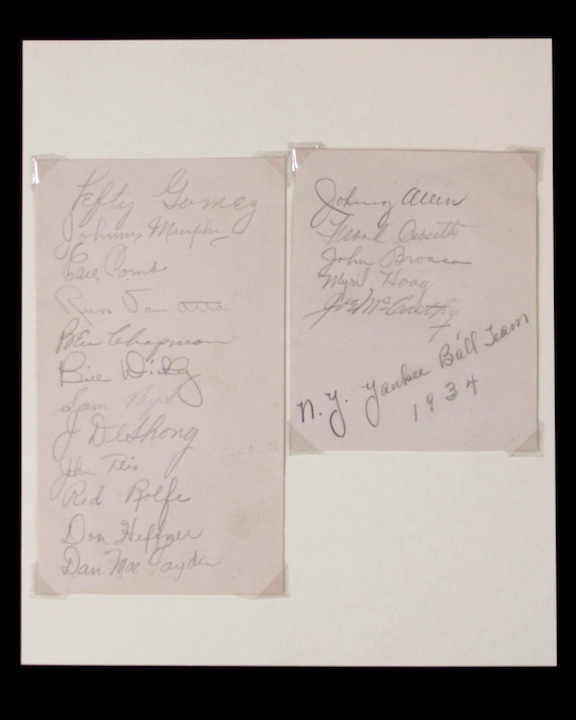 Lefty Gomez
Johnny Murphy
Earl Combs
Russ Van Atta
Ben Chapman
Bill Dickey
Sam Byrd
J DeShong
John
Red Rolfe
Don Heffner
Dan MacFayden
Johnny Allen
Frank Crosetti
John Broaca
Myril Hoag
Joe McCarthy
7
N.Y. Yankee Ball Team
1934